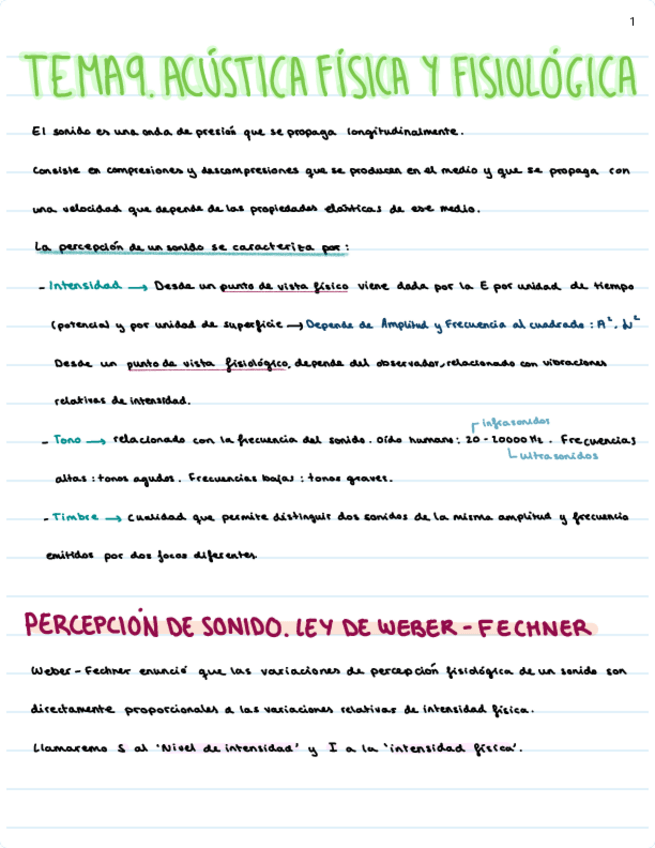 1
TEMA 9. ACÚSTICA FÍSICA Y FISIOLÓGICA
El sonido es una onda de presión que se propaga longitudinalmente.
Consiste en compresiones y descompresiones que se producen en el medio y que se propaga con
una velocidad que depende de las propiedades elásticas de ese medio.
La percepción de un sonido se caracteriza por:
- Intensidad → Desde un punto de vista físico viene dada por la E por unidad de tiempo
(potencia) y por unidad de superficie → Depende de Amplitud y Frecuencia al cuadrado: A², ν²
Desde un punto de vista fisiológico, depende del observador, relacionado con vibraciones
relativas de intensidad.
infrasonidos
- Tono → relacionado con la frecuencia del sonido. Oído humano: 20 - 20000 Hz. Frecuencias
ultrasonidos
altas: tonos agudos. Frecuencias bajas: tonos graves.
- Timbre → Cualidad que permite distinguir dos sonidos de la misma amplitud y frecuencia
emitidos por dos focos diferentes.
PERCEPCIÓN DE SONIDO. LEY DE WEBER - FECHNER
Weber - Fechner enunció que las variaciones de percepción fisiológica de un sonido son
directamente proporcionales a las variaciones relativas de intensidad física.
Llamaremo S al 'Nivel de intensidad' y I a la 'intensidad física'.